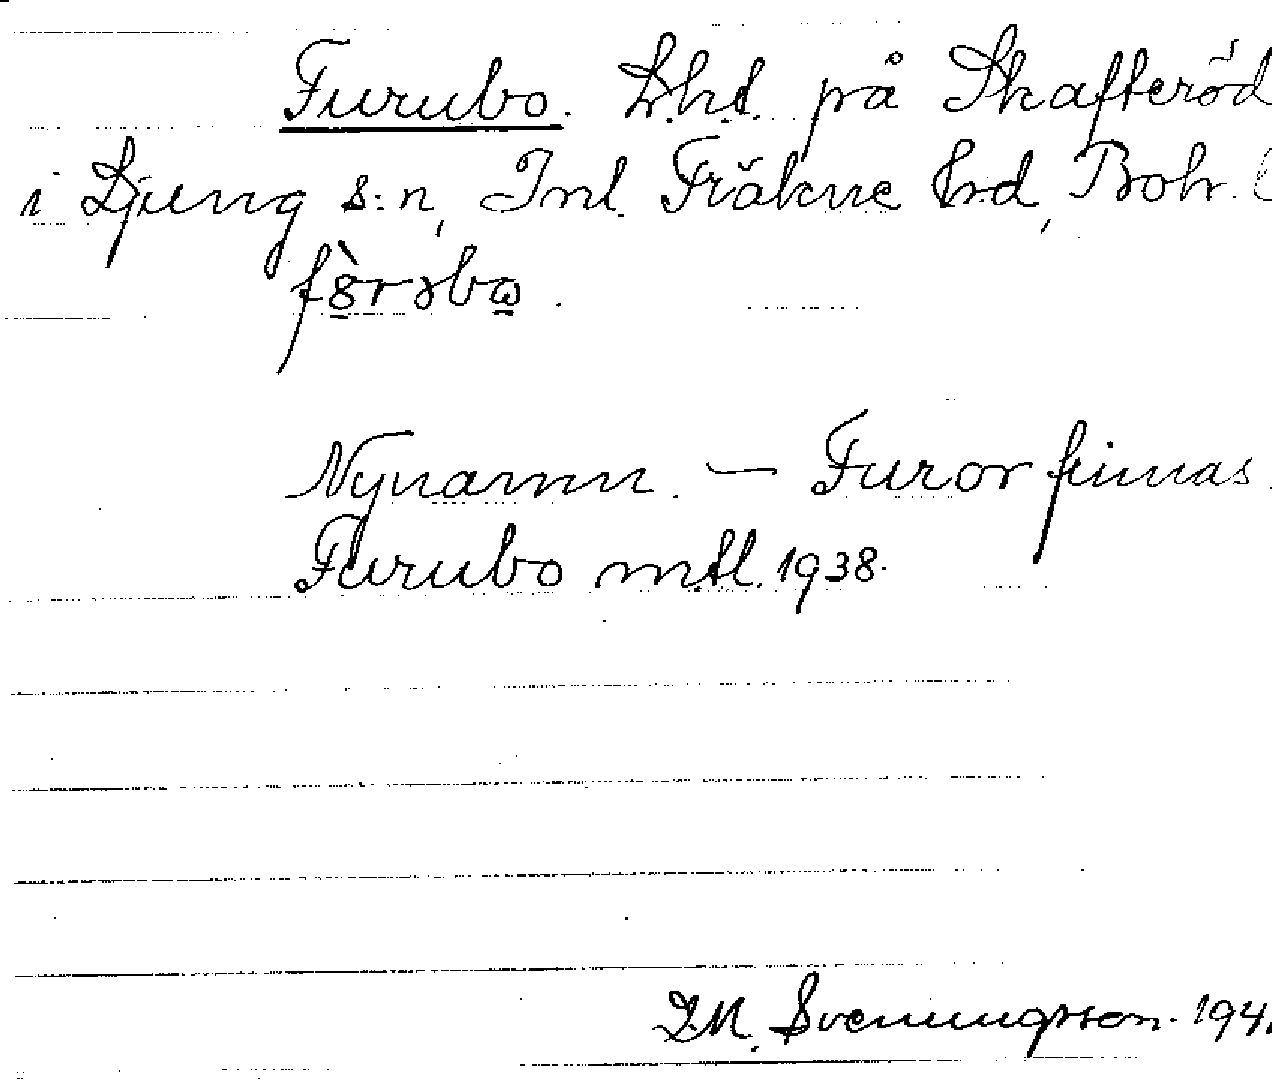 Furubo. Lht. på Skafteröd
i Ljung s:n, Inl. Fräkne hrd, Boh. l
Nynamn. — Furor finnas.
Furubo mtl. 1938.
Svenningsson. 194